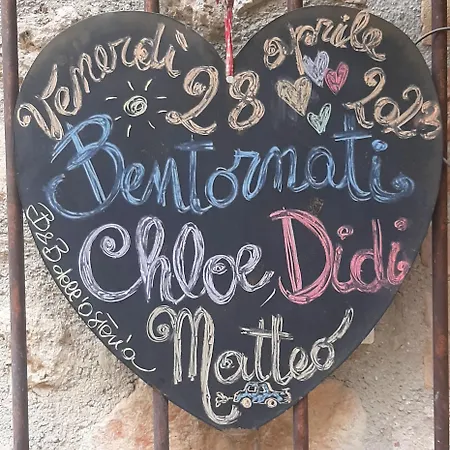 Venerdì 28 aprile 2023
Bentornati
Chloe, Didi
Matteo
B&B dell'osteria